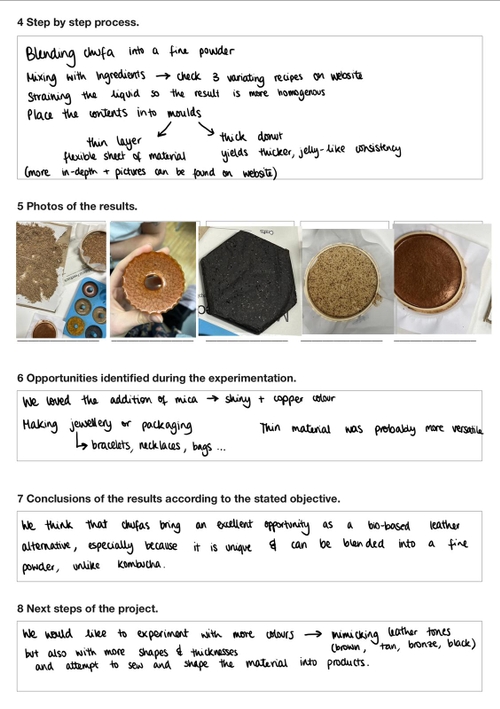 4 Step by step process.
Blending chufa into a fine powder
Mixing with ingredients → check 3 variating recipes on website
Straining the liquid so the result is more homogenous
Place the contents into moulds
thin layer
flexible sheet of material
thick donut
yields thicker, jelly-like consistency
(more in-depth + pictures can be found on website)
5 Photos of the results.
6 Opportunities identified during the experimentation.
We loved the addition of mica → shiny + copper colour
Making jewellery or packaging
↳ bracelets, necklaces, bags ...
Thin material was probably more versatile
7 Conclusions of the results according to the stated objective.
We think that chufas bring an excellent opportunity as a bio-based leather
alternative, especially because it is unique & can be blended into a fine
powder, unlike kombucha.
8 Next steps of the project.
We would like to experiment with more colours → mimicking leather tones
(brown, tan, bronze, black)
but also with more shapes & thicknesses
and attempt to sew and shape the material into products.